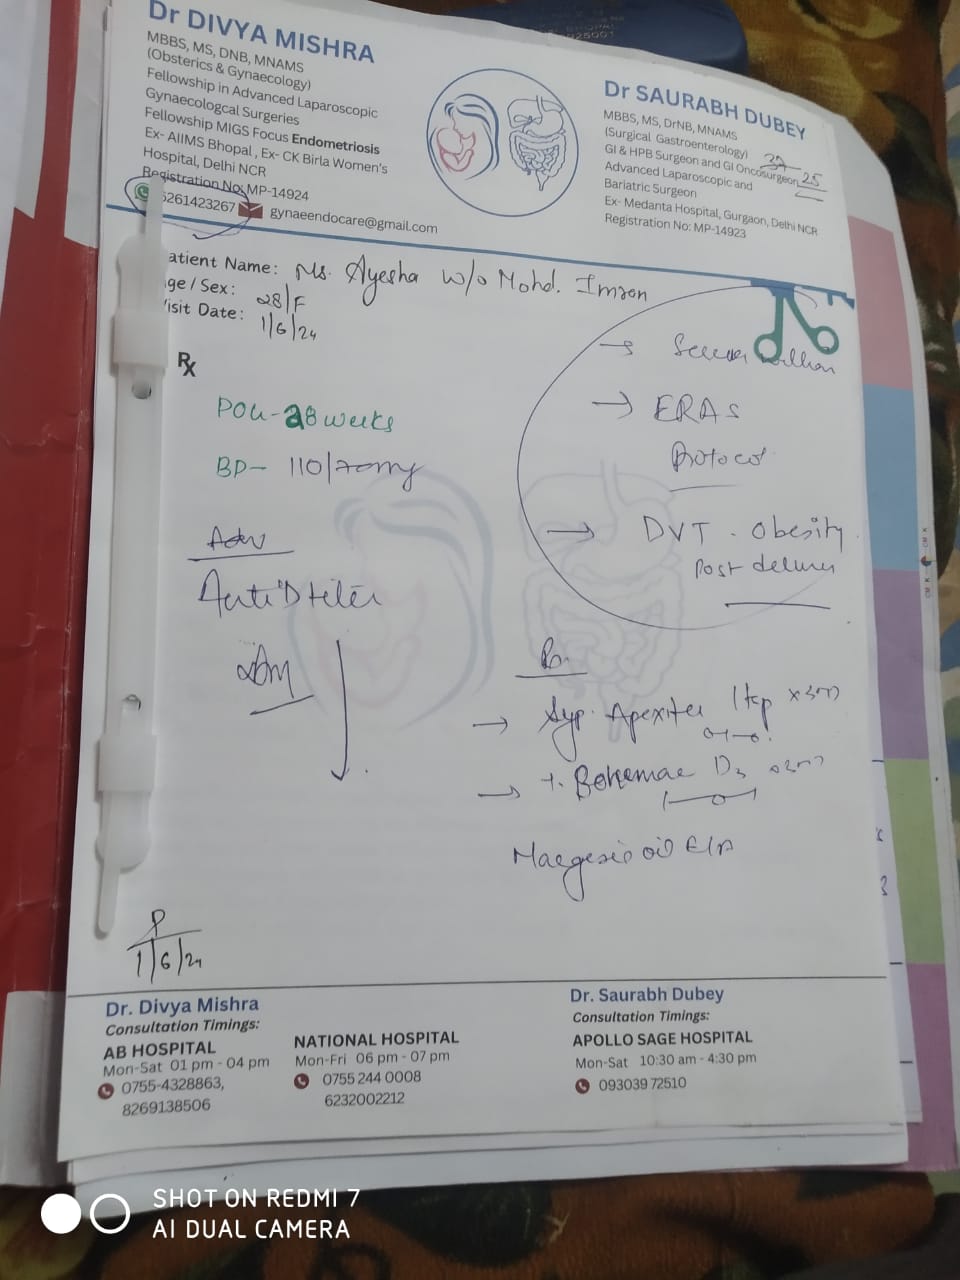 Dr DIVYA MISHRA
MBBS, MS, DNB, MNAMS
(Obsterics & Gynaecology)
Fellowship in Advanced Laparoscopic
Gynaecologcal Surgeries
Fellowship MIGS Focus Endometriosis
Ex- AIIMS Bhopal , Ex- CK Birla Women's
Hospital, Delhi NCR
Registration No: MP-14924
6261423267 gynaeendocare@gmail.com
Dr SAURABH DUBEY
MBBS, MS, DrNB, MNAMS
(Surgical Gastroenterology)
GI & HPB Surgeon and GI Oncosurgeon
Advanced Laparoscopic and
Bariatric Surgeon
Ex- Medanta Hospital, Gurgaon, Delhi NCR
Registration No: MP-14923
37
25
atient Name: Ms. Ayesha w/o Mohd. Imran
ge / Sex: 28/F
isit Date: 1/6/24
Rx
POG - 28 weeks
BP - 110/70
Adv
→ ERAS
Protocol
→ DVT - Obesity
Post
Anti D
→ Syp. 1 tsp
→ D3
oil
1/6/24
Dr. Divya Mishra
Consultation Timings:
AB HOSPITAL
Mon-Sat 01 pm - 04 pm
0755-4328863,
8269138506
NATIONAL HOSPITAL
Mon-Fri 06 pm - 07 pm
0755 244 0008
6232002212
Dr. Saurabh Dubey
Consultation Timings:
APOLLO SAGE HOSPITAL
Mon-Sat 10:30 am - 4:30 pm
093039 72510
SHOT ON REDMI 7
AI DUAL CAMERA